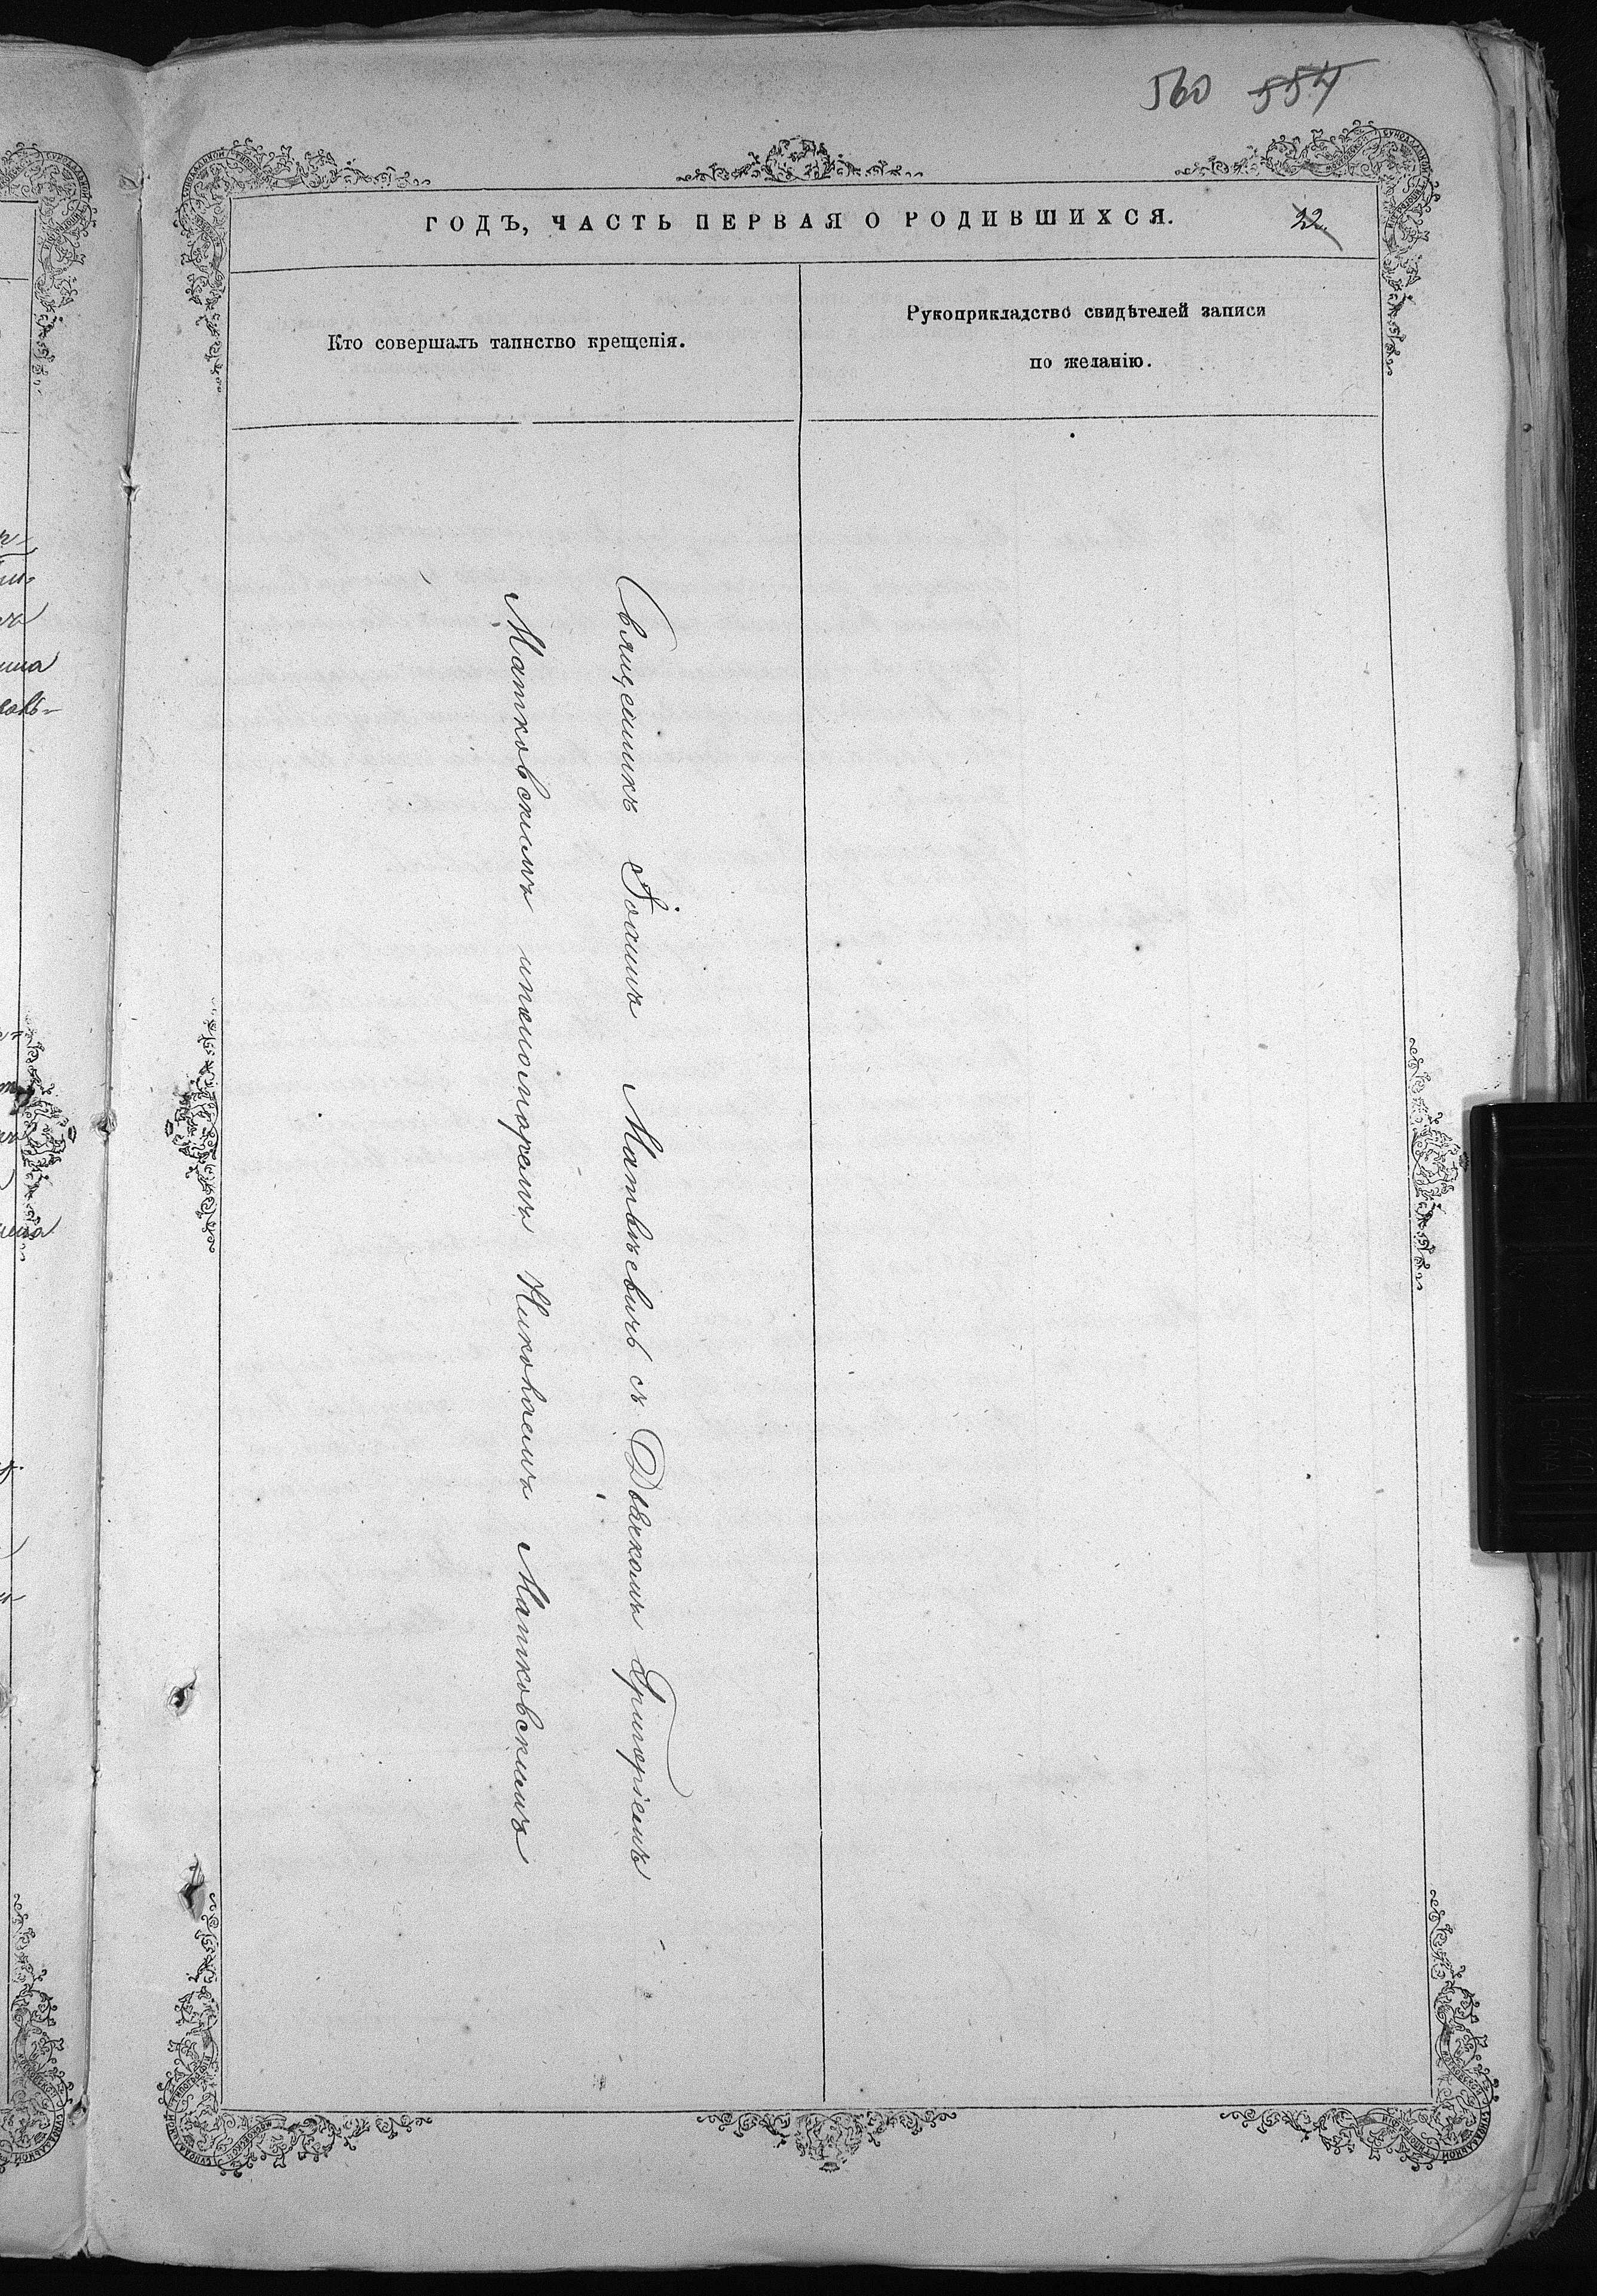 560 554
ГОДЪ, ЧАСТЬ ПЕРВАЯ О РОДИВШИХСЯ.
22
Кто совершалъ таинство крещенія.
Рукоприкладство свидѣтелей записи
по желанію.
Священникъ Іоаннъ Матвѣевичъ съ Дьячкомъ Григоріемъ
Матковскимъ ипсаломщикомъ Николаемъ Матковскимъ